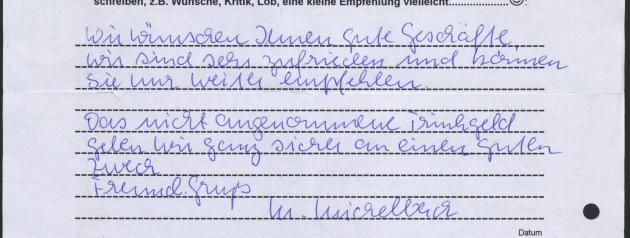 schreiben, z.B. Wünsche, Kritik, Lob, eine kleine Empfehlung vielleicht....................☺:
Wir wünschen Ihnen gute Geschäfte,
wir sind sehr zufrieden und können
Sie nur weiter empfehlen.
Das nicht angenommene Trinkgeld
geben wir ganz sicher an einen guten
Zweck
Freundl. Gruß
M. Michelbach
Datum